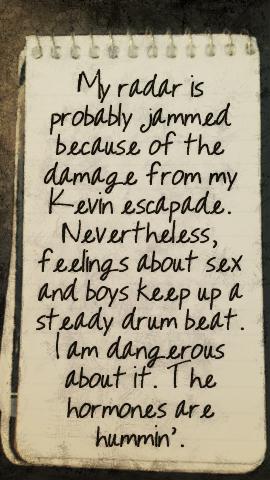 My radar is
probably jammed
because of the
damage from my
Kevin escapade.
Nevertheless,
feelings about sex
and boys keep up a
steady drum beat.
I am dangerous
about it. The
hormones are
hummin'.